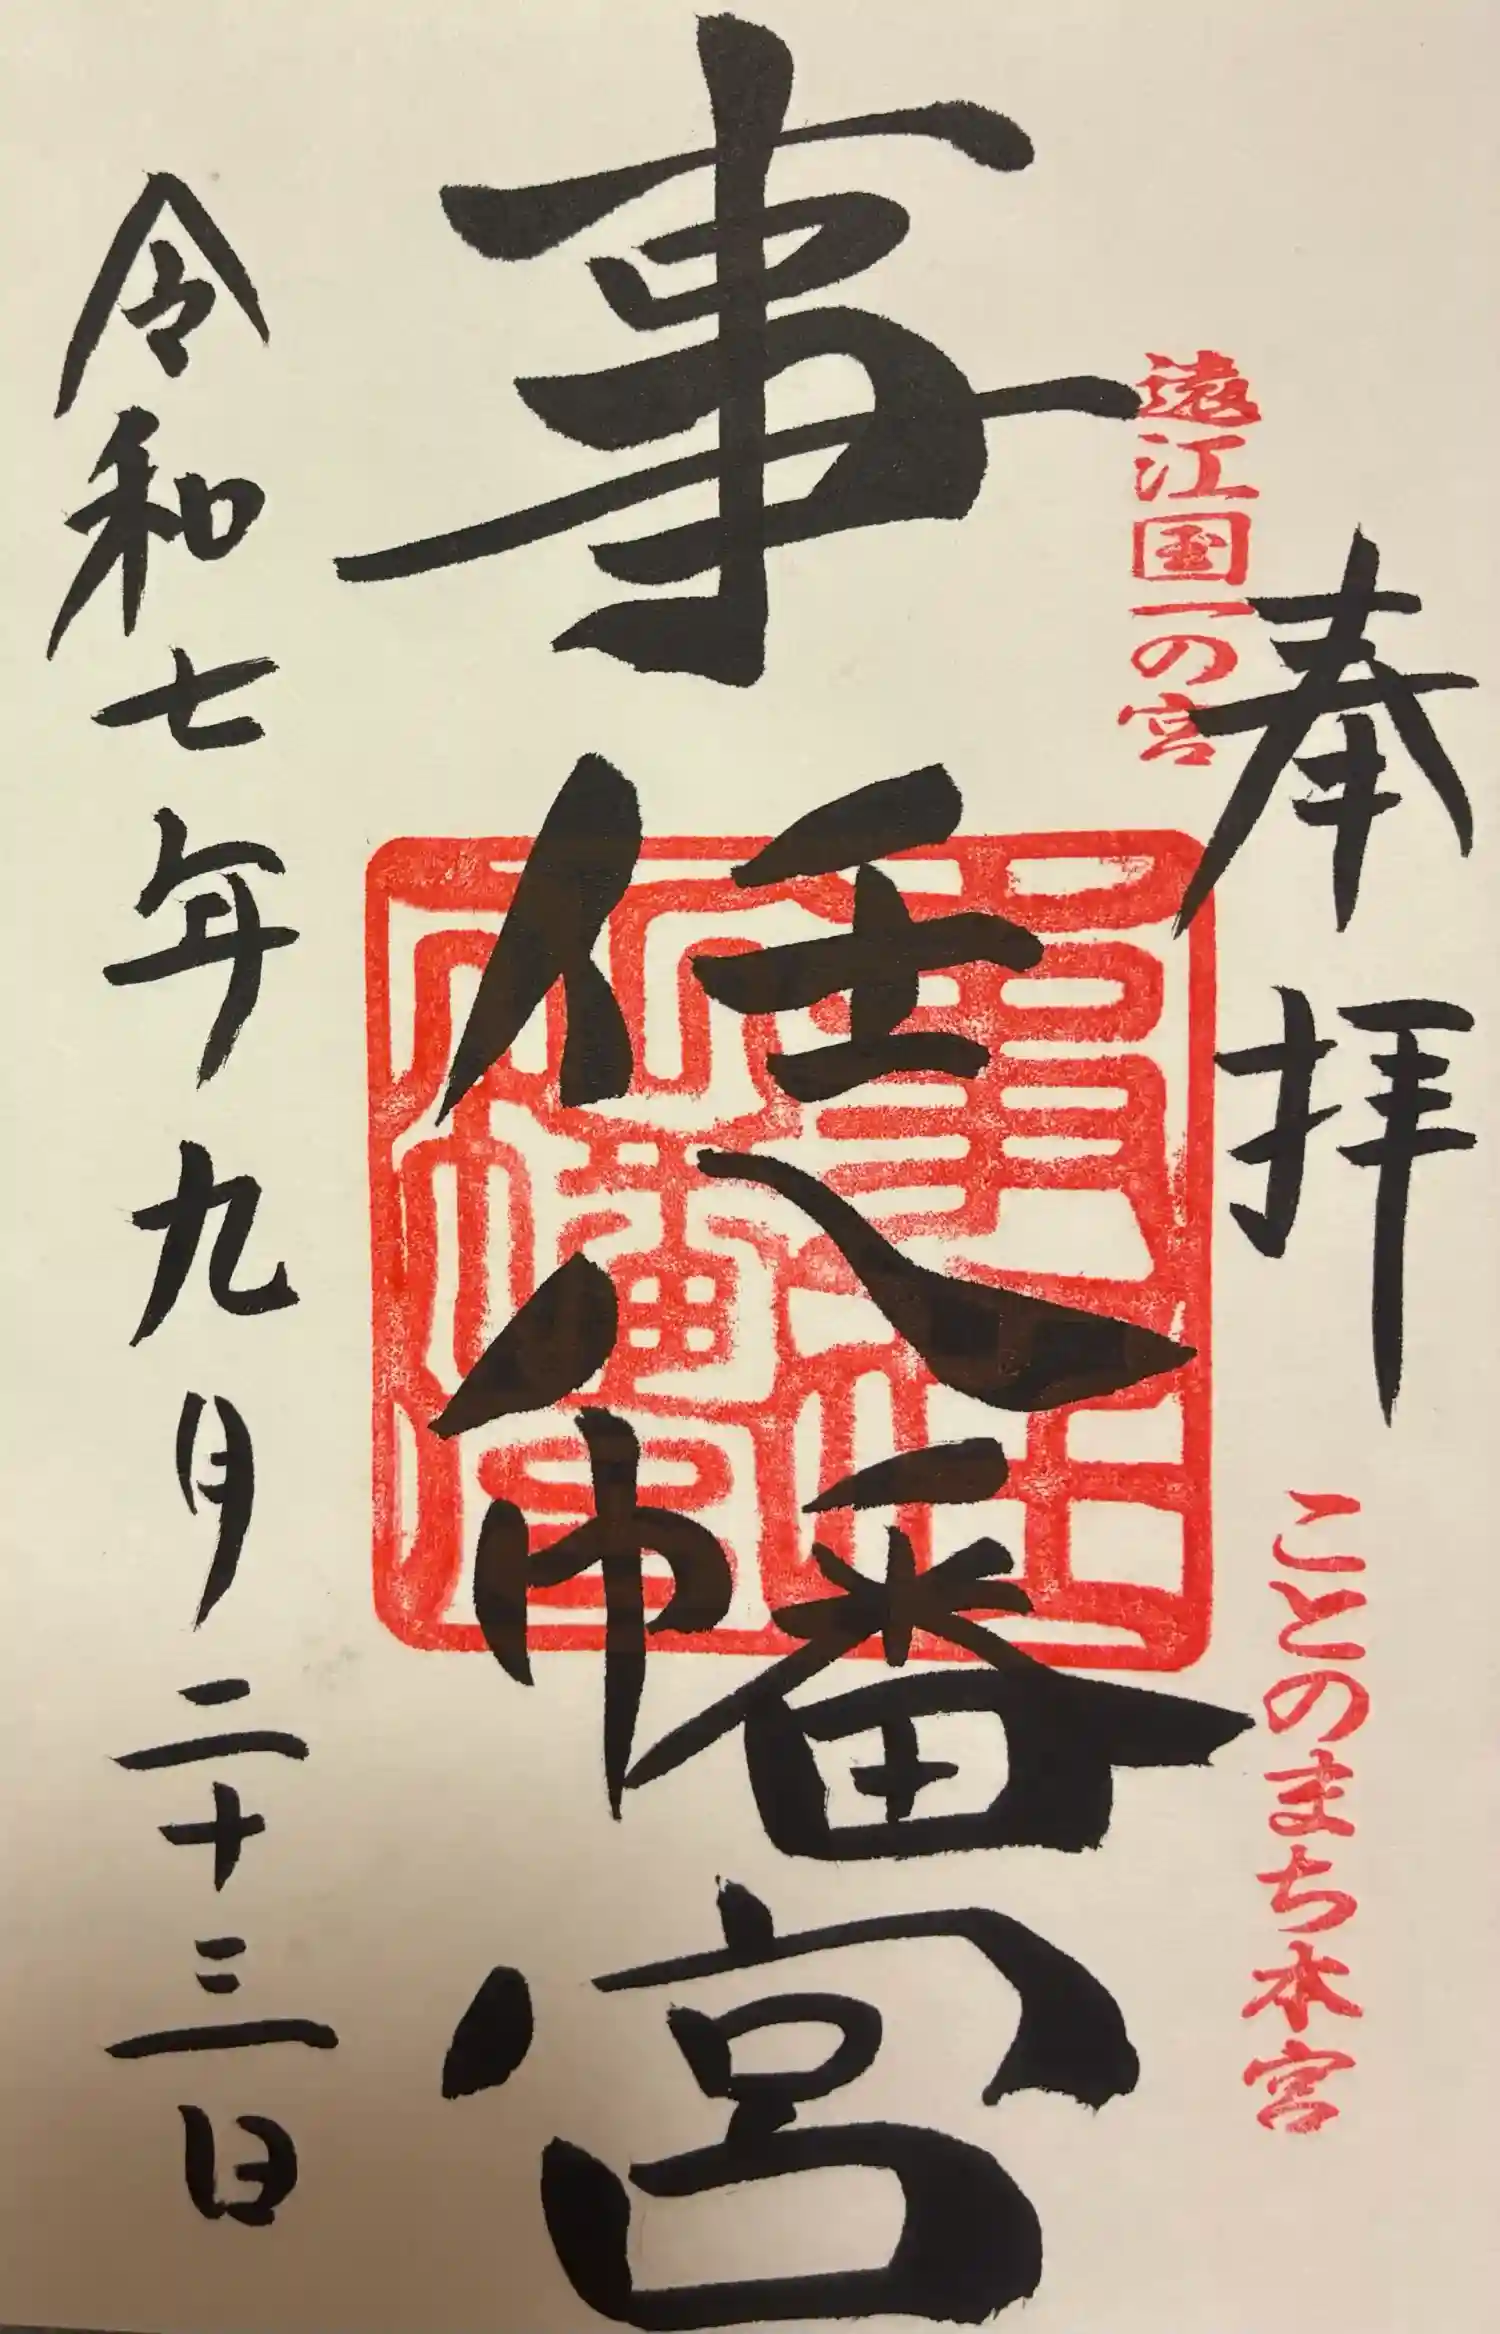 奉拝
遠江国一の宮
ことのまち本宮
事任八幡宮
事任
八幡宮
令和七年九月二十三日